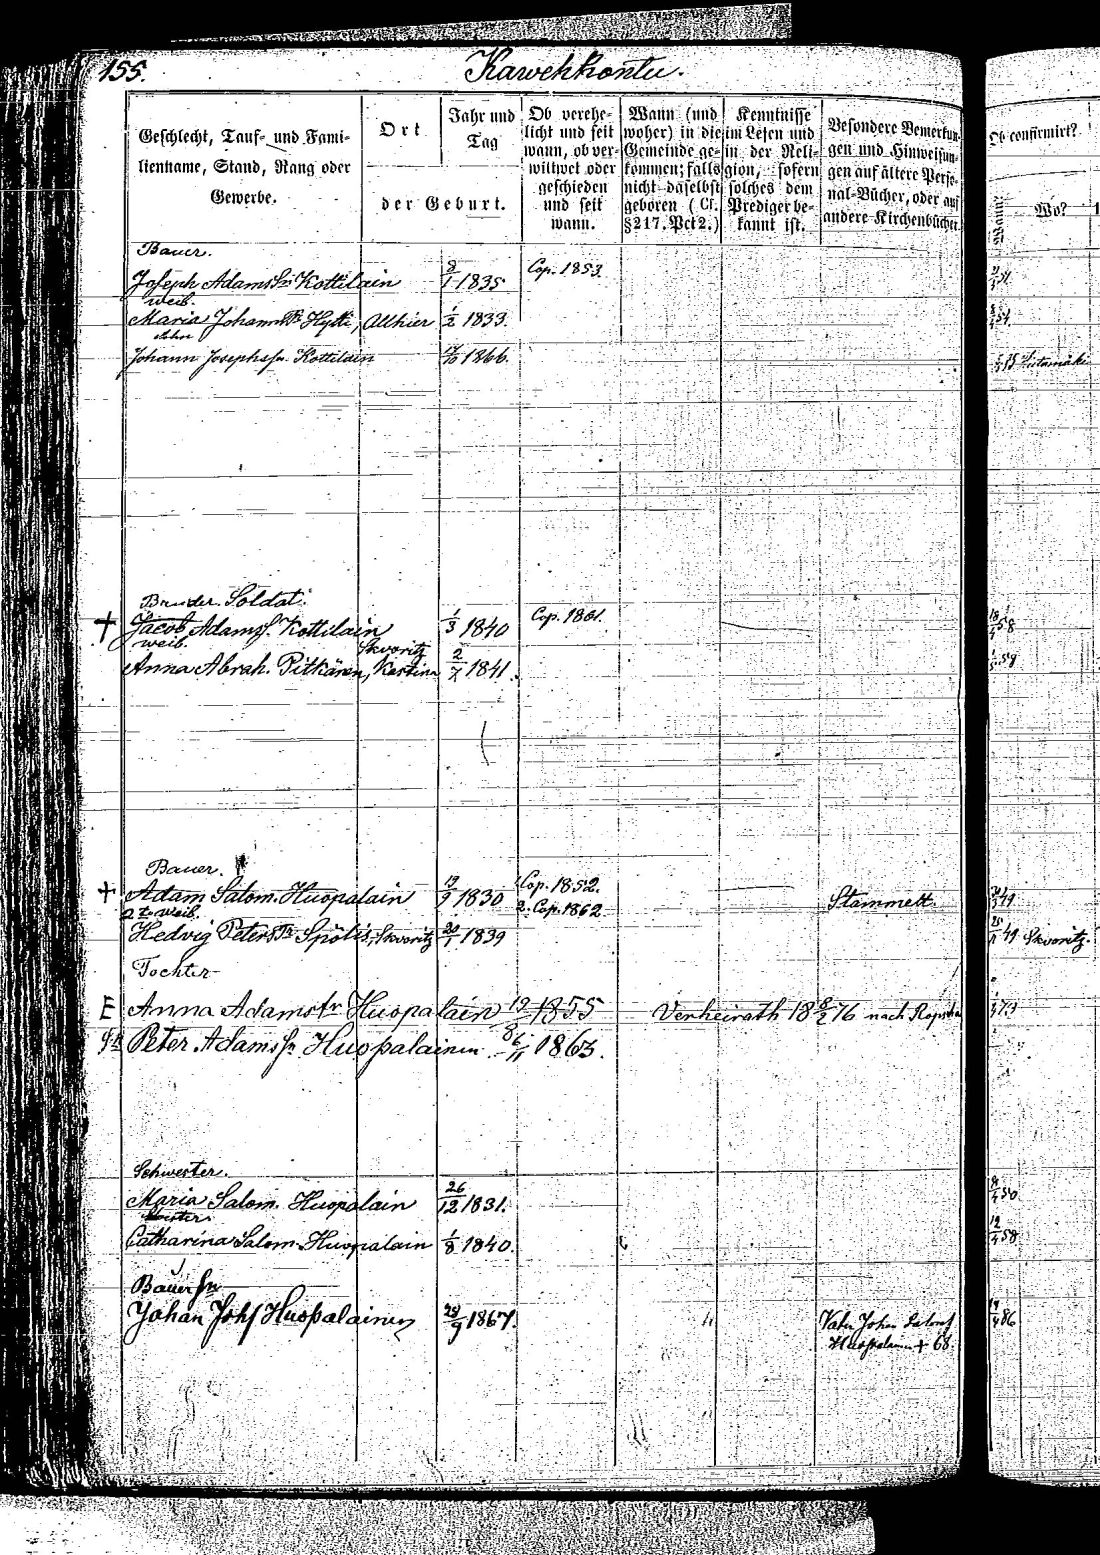 155.
Kawekkontu.
Geschlecht, Tauf- und Fami-
lienname, Stand, Rang oder
Gewerbe.
Ort
der Geburt.
Jahr und
Tag
Ob verehe-
licht und seit
wann, ob ver-
wittwet oder
geschieden
und seit
wann.
Wann (und
woher) in die
Gemeinde ge-
kommen; falls
nicht daselbst
geboren (Cf.
§217. Pct 2.)
Kenntnisse
im Lesen und
in der Reli-
gion, sofern
solches dem
Prediger be-
kannt ist.
Besondere Bemerkun-
gen und Hinweisun-
gen auf ältere Perso-
nal-Bücher, oder auf
andere Kirchenbücher.
Ob confirmirt?
Wann?
Wo?
Bauer.
Joseph Adamssn Kottilain 8/1 1835 Cop. 1853
weib.
Maria Johanns Tr Hytti, Allhier 1/2 1833.
Sohn
Johann Josephssn. Kottilain 1866.
Bruder. Soldat.
+ Jacob Adamss. Kottilain 1/3 1840 Cop. 1861. 58
weib. Skvoritz
Anna Abrah. Pitkänen, 2/7 1841. 59
Bauer.
+ Adam Salom. Huopalain 19/9 1830 1 Cop. 1852. Stammett 49
2te Weib. 2. Cop. 1862
Hedvig Peters Tr Spölis, Skvoritz 20/1 1839 49 Skvoritz.
Tochter
E Anna Adamstr Huopalain 19/8 1855 Verheirath 18 8/2 76 nach 73
Peter Adamssn Huopalainen 6/11 1863.
Schwester.
Maria Salom. Huopalain 26/12 1831. 50
Catharina Salom. Huopalain 1/8 1840. 58
Bauer sn
Johan Johs Huopalainen 29/9 1867. Vater Johan Saloms 86
Huopalainen + 68.